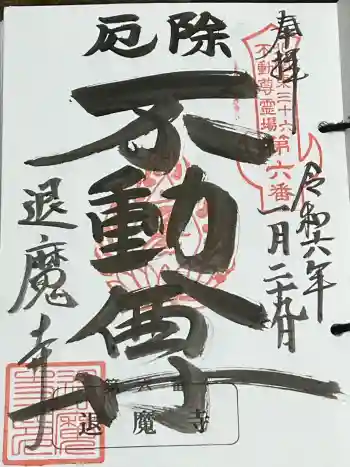 奉拝
令和六年
一月二十九日
関東三十六
不動尊霊場第六番
厄除
不動尊
退魔寺
第六番
退魔寺